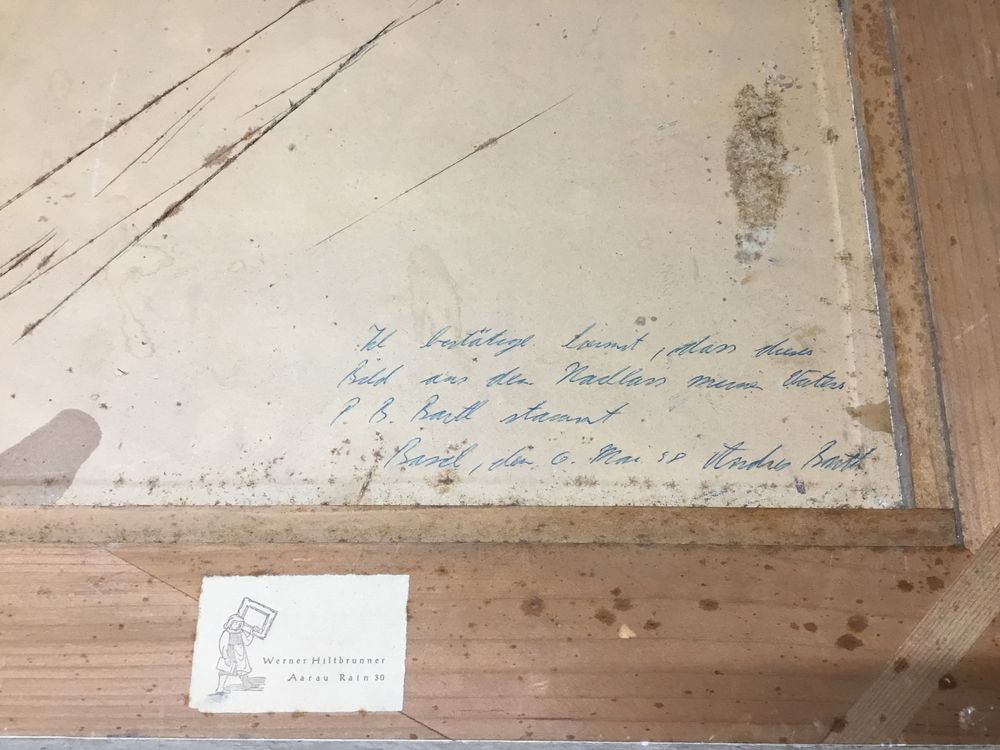 Ich bestätige hiermit, dass dieses
Bild aus dem Nachlass meines Vaters
P. B. Barth stammt
Basel, den 6. Mai 58 Andres Barth
Werner Hiltbrunner
Aarau Rain 30